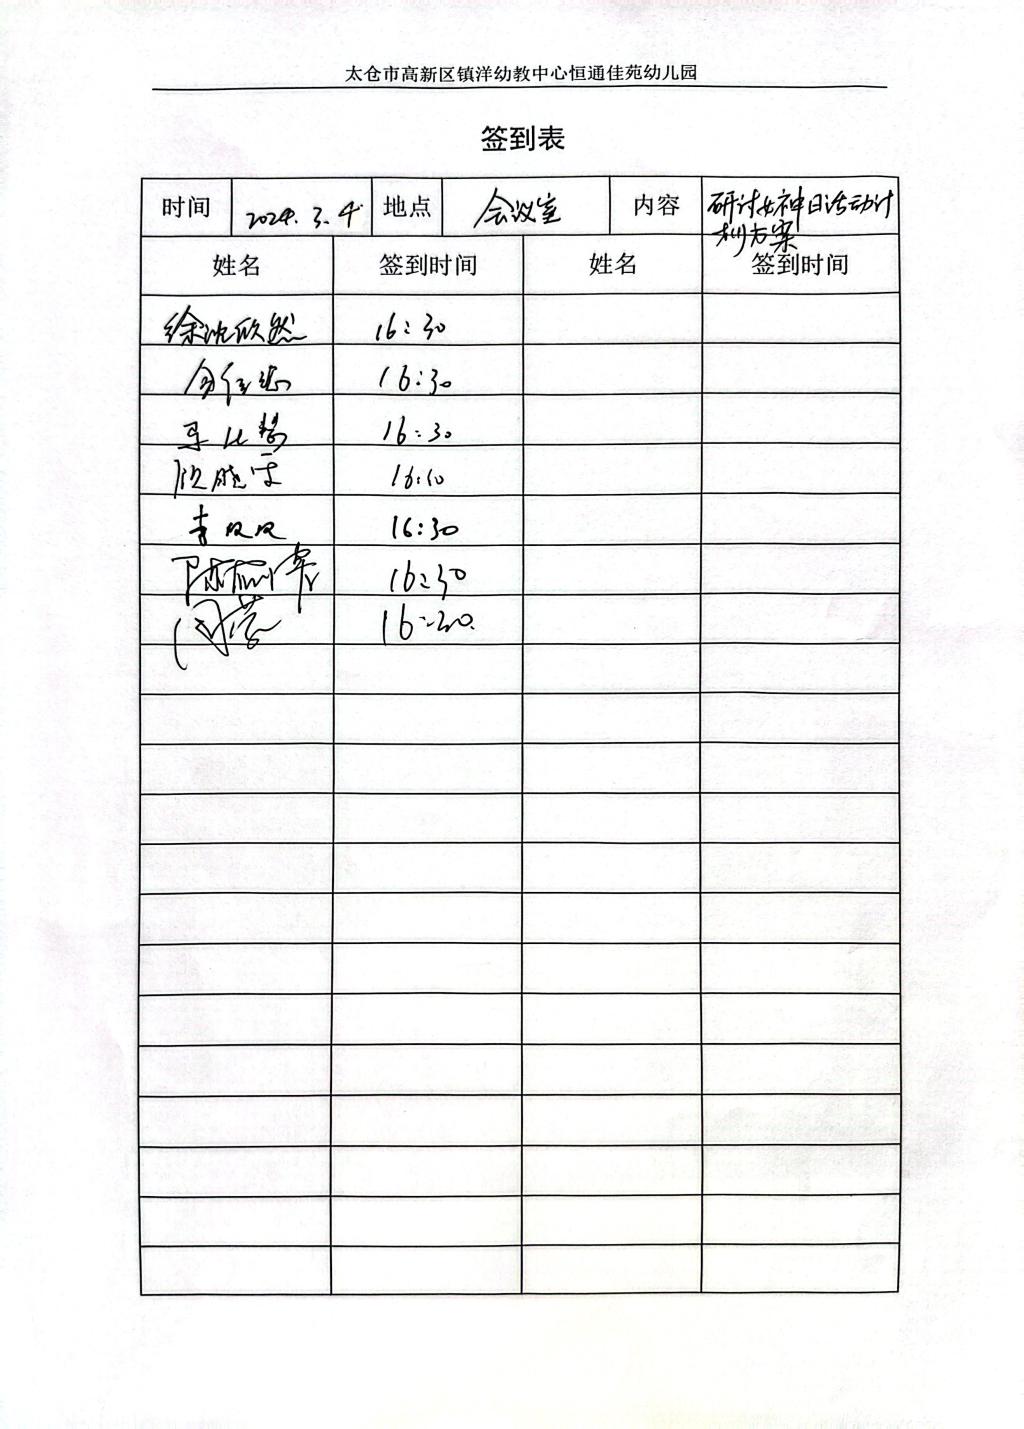 太仓市高新区镇洋幼教中心恒通佳苑幼儿园
签到表
时间 2024.3.4 地点 会议室 内容 研讨女神日活动计划方案
姓名 签到时间 姓名 签到时间
徐沈欣然 16:30
16:30
16:30
16:10
16:30
16:30
16:30